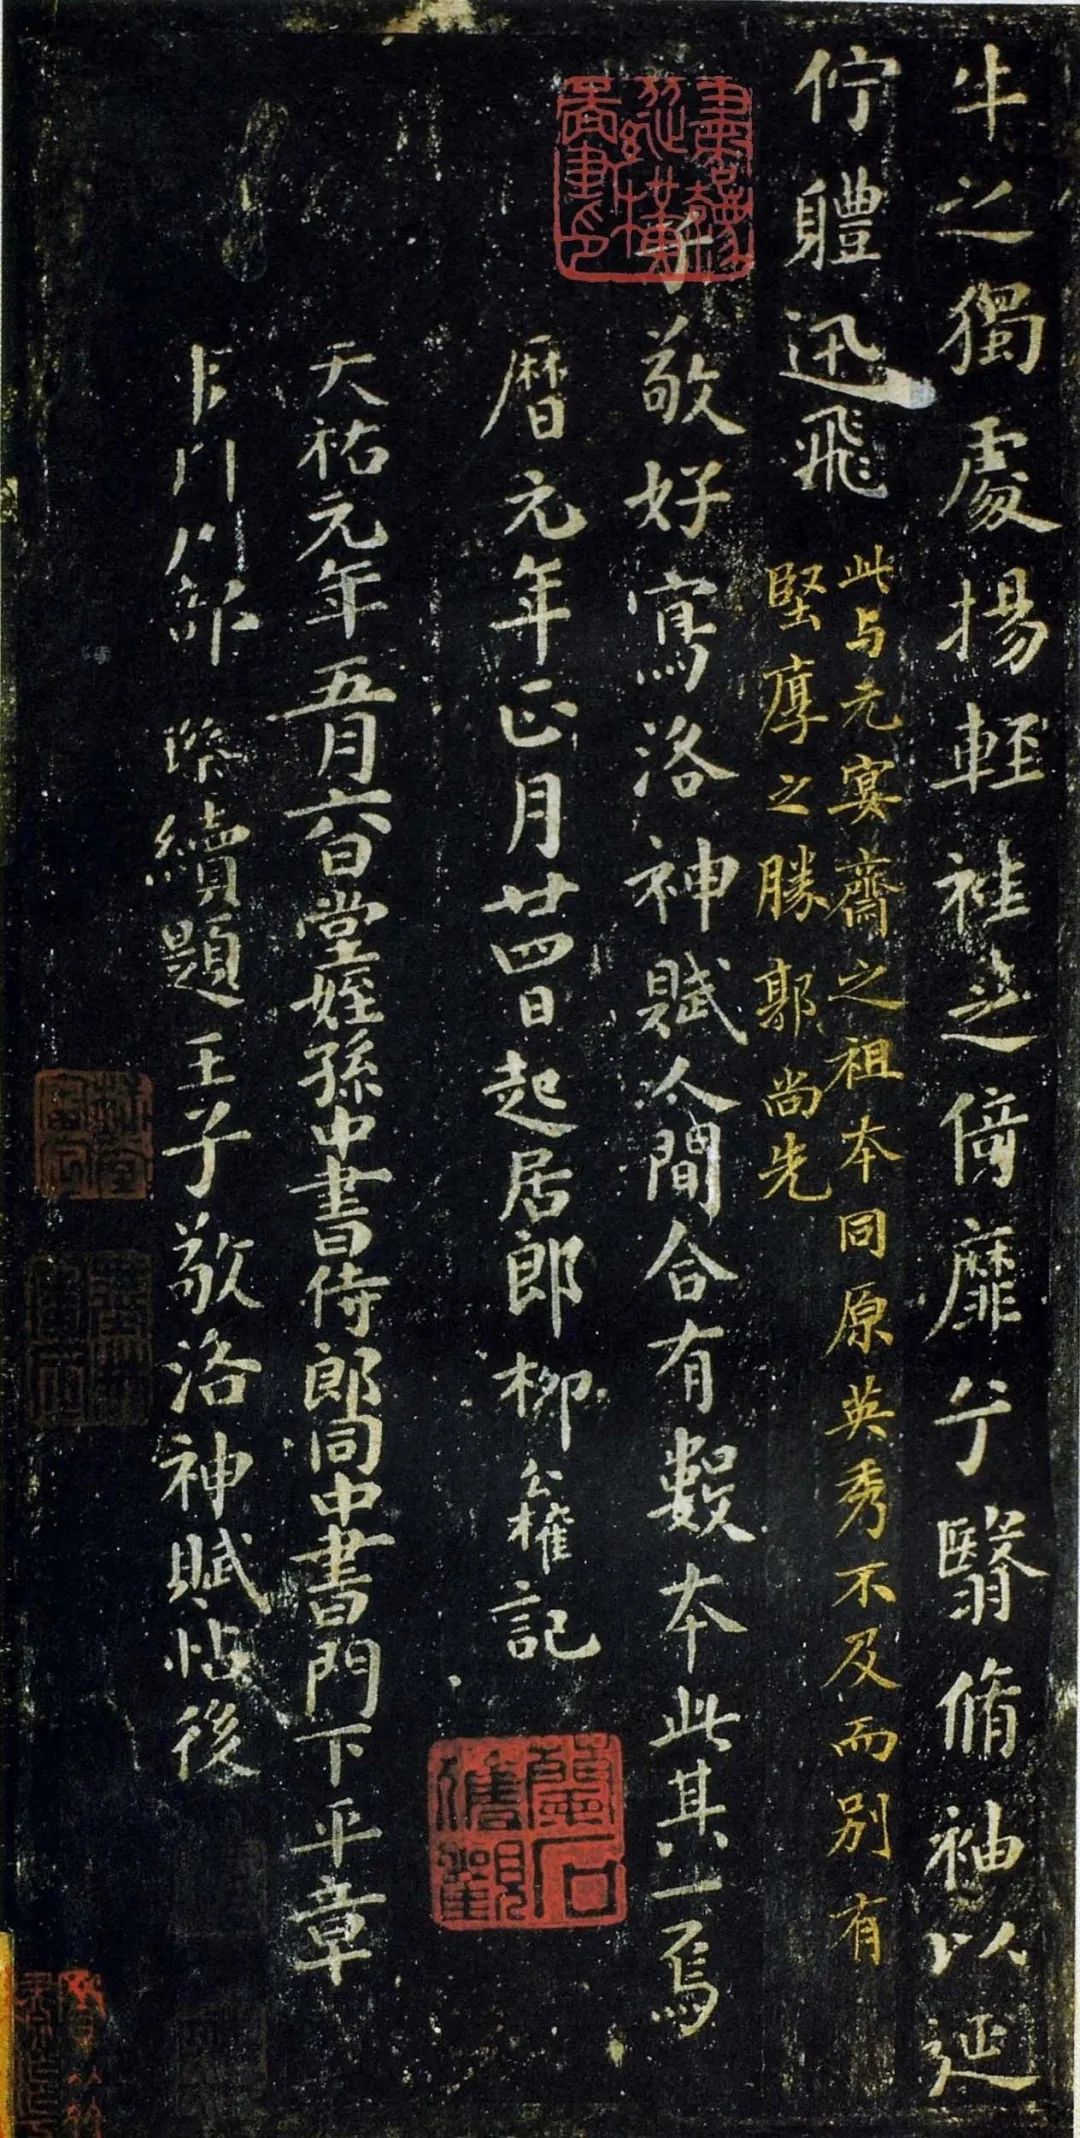 牛之獨處揚輕袿之倚靡兮翳脩袖以延
佇軆迅飛
此与元宴齋之祖本同原英秀不及而别有
堅厚之勝郭尚先
子敬好寫洛神賦人間合有數本此其一焉
曆元年正月廿四日起居郎柳公權記
天祐元年五月六日堂姪孫中書侍郎同中書門下平章
部
續題王子敬洛神賦帖後
蘭石
審觀